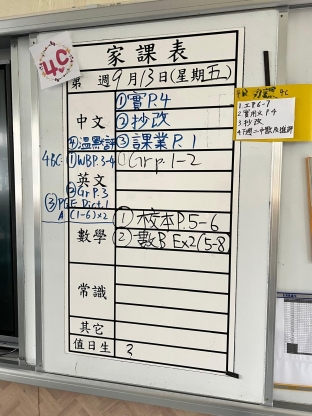 4C
家課表
第 週9月13日(星期五)
中文
①實P.4
②抄改
④溫默評 ③課業P.1
4BC: ①WBP.3-4 ①Grp.1-2
英文
②GrP.3
③PGE Dict.1
A (1-6)×2
① 校本P.5-6
數學
② 數B Ex2(5-8)
常識
其它
值日生 2
4C
1.工P.6-7
2.實用文P.4
3.抄改
4.下週二中默及進評